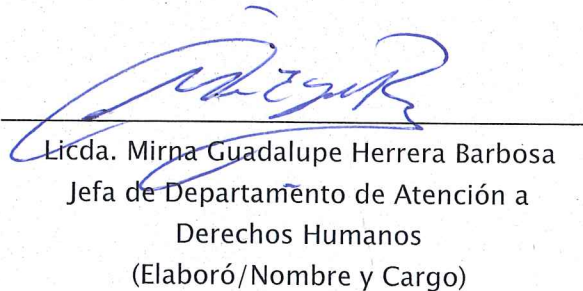 Licda. Mirna Guadalupe Herrera Barbosa
Jefa de Departamento de Atención a
Derechos Humanos
(Elaboró/Nombre y Cargo)